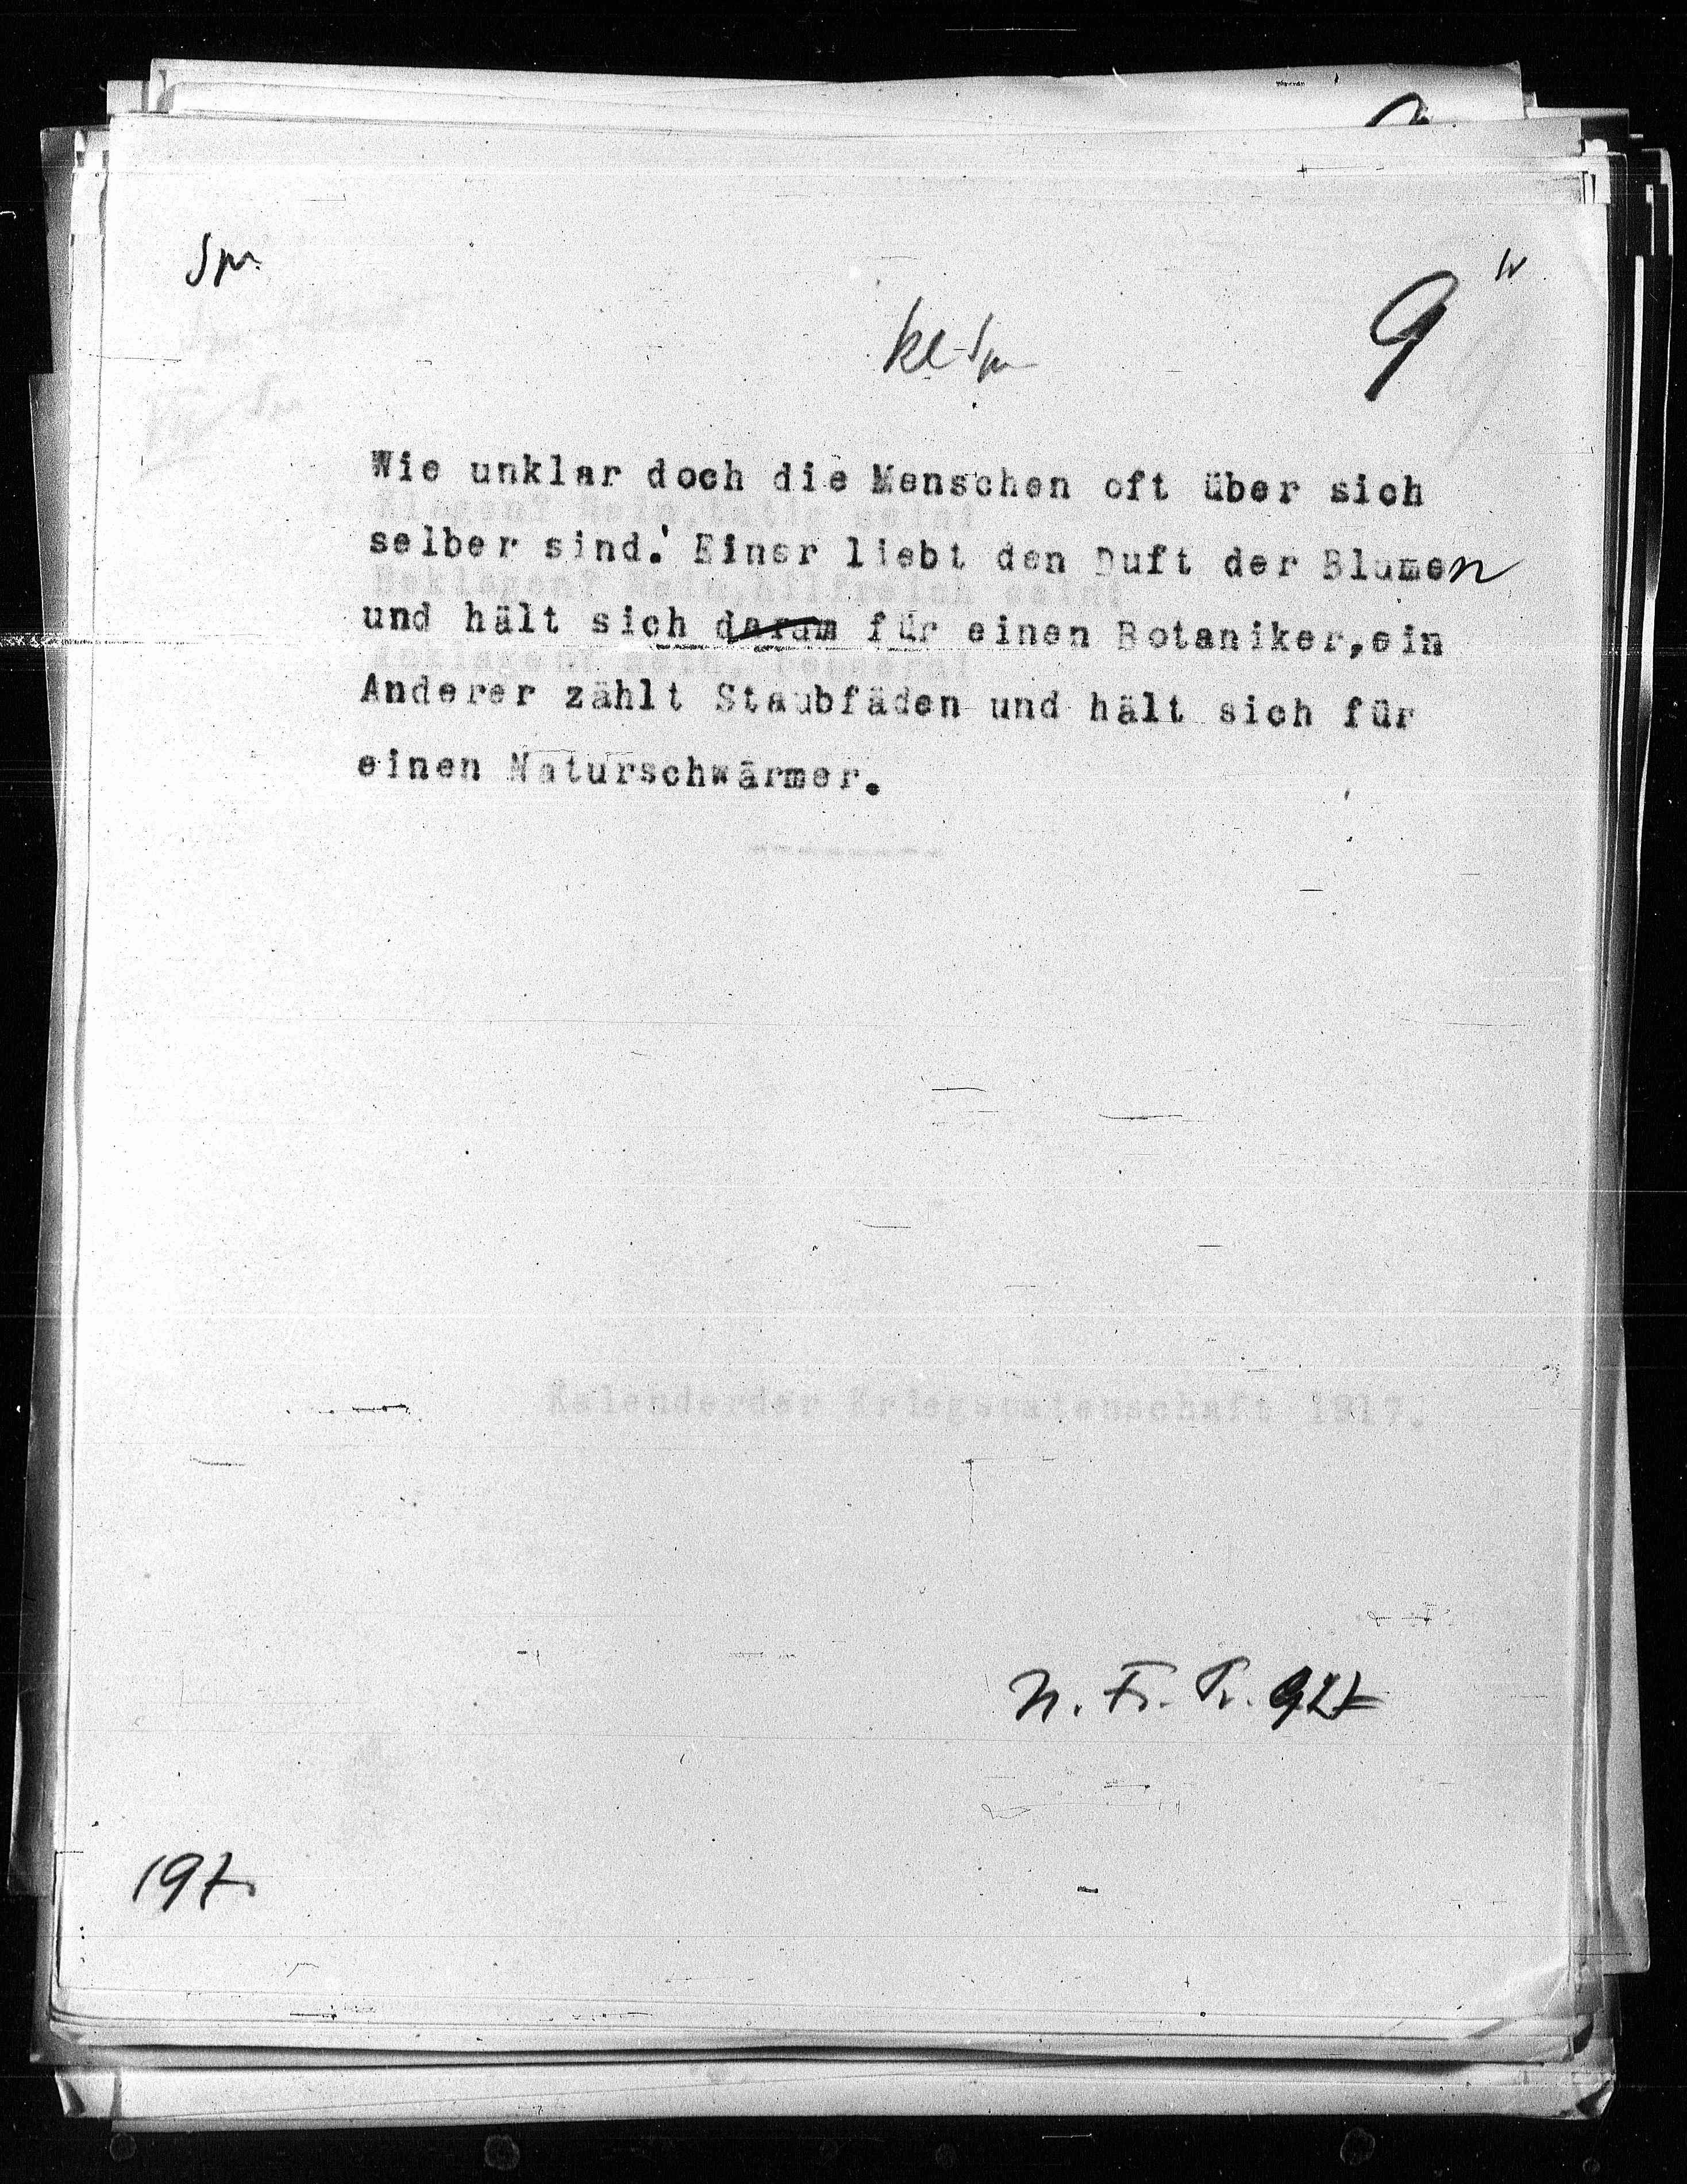 Spr.
W
9
kl Spr
Wie unklar doch die Menschen oft über sich
selber sind.' Einer liebt den Duft der Blumen
und hält sich darum für einen Botaniker,ein
Anderer zählt Staubfäden und hält sich für
einen Naturschwärmer.
Kalenderder Kriegspatenschaft 1917.
N. Fr. Pr. 927
197.